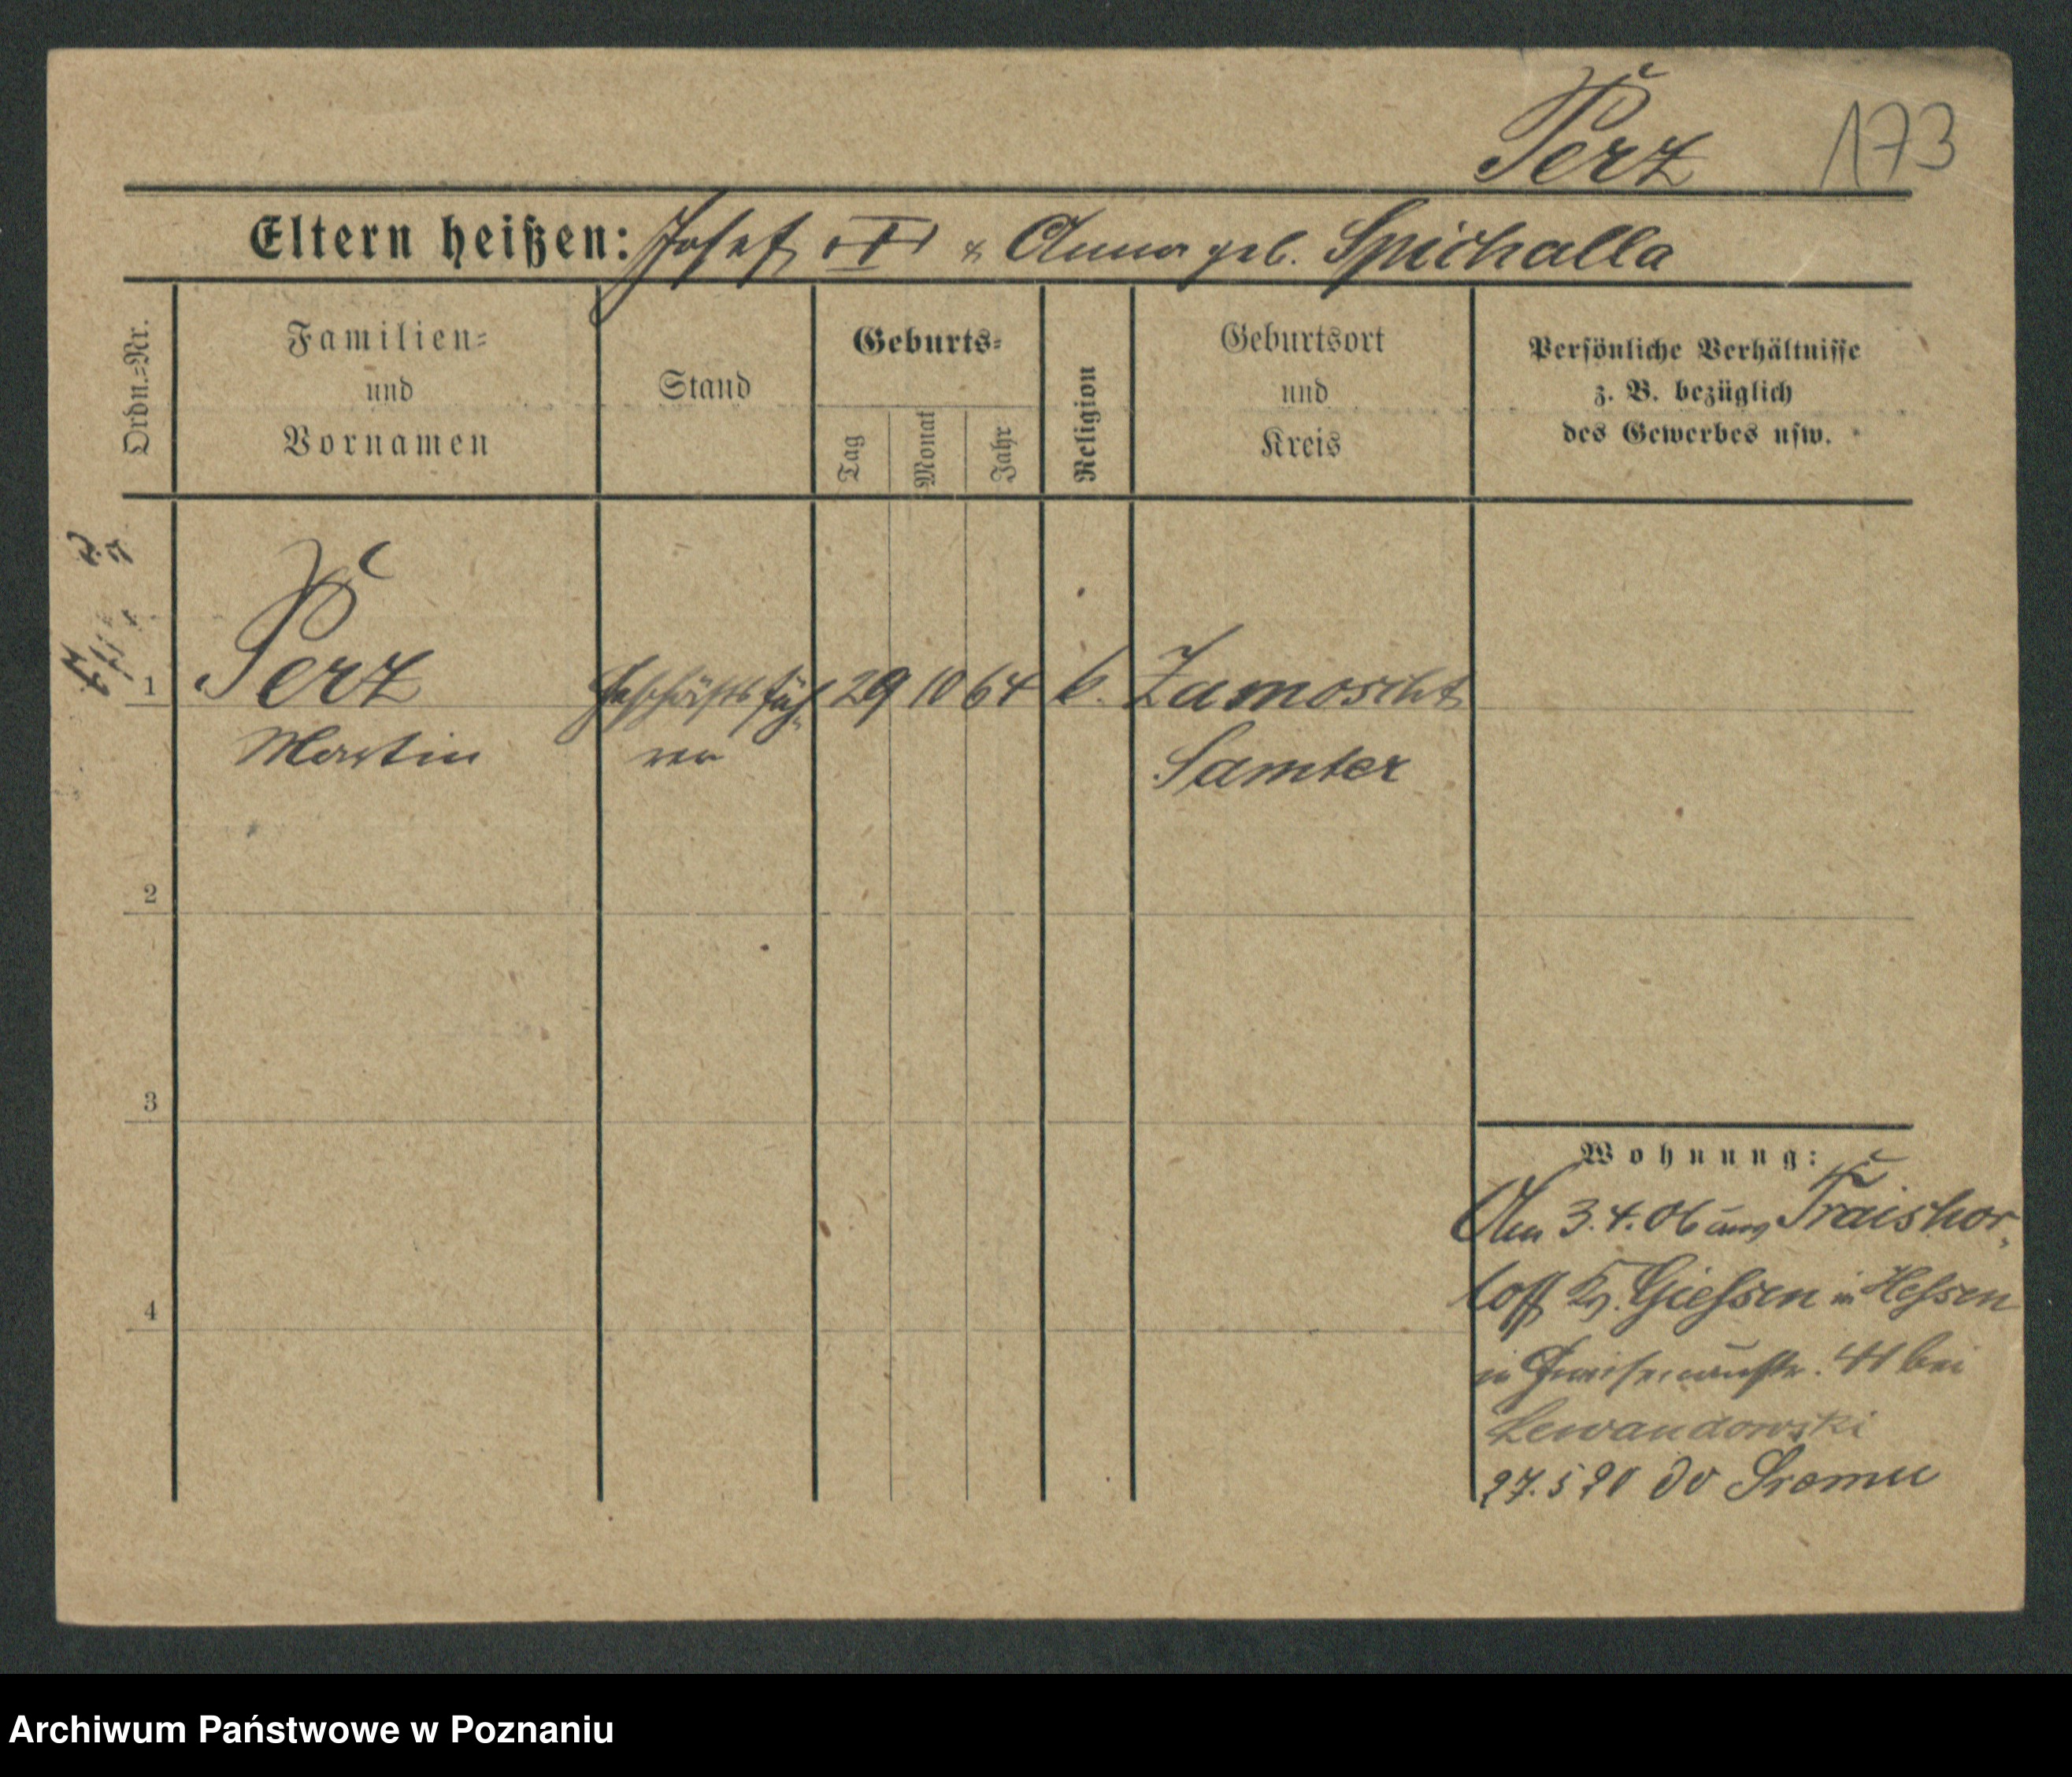 Perz 173
Eltern heißen: Josef & Anna geb. Spichalla
Ordn.-Nr.
Familien-
und
Vornamen
Stand
Geburts-
Tag
Monat
Jahr
Religion
Geburtsort
und
Kreis
Persönliche Verhältnisse
z. B. bezüglich
des Gewerbes usw.
1 Perz Geschäftsfüh- 29 10 64 k. Zamoscht
Martin rer Samter
2
3
4
Wohnung:
Am 3.4.06 aus Traishor-
loff Kr. Giessen in Hessen
in bei
Lewandowski
27.5 20 do Sremu
Archiwum Państwowe w Poznaniu